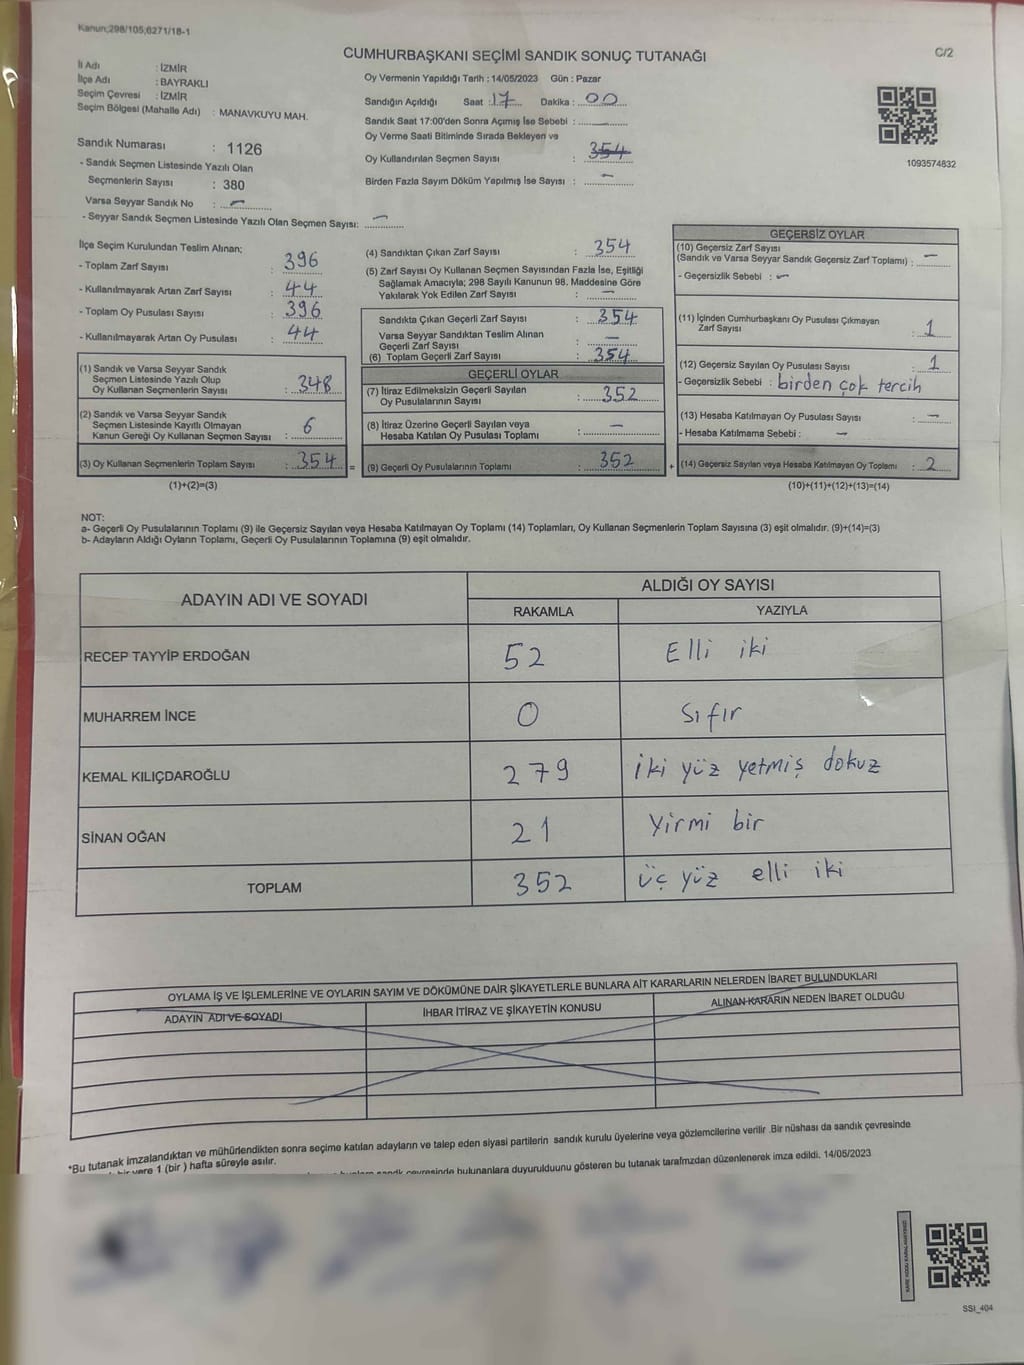 Kanun;298/105;6271/18-1
C/2
CUMHURBAŞKANI SEÇİMİ SANDIK SONUÇ TUTANAĞI
İl Adı : İZMİR
İlçe Adı : BAYRAKLI
Seçim Çevresi : İZMİR
Seçim Bölgesi (Mahalle Adı) : MANAVKUYU MAH.
Sandık Numarası : 1126
- Sandık Seçmen Listesinde Yazılı Olan
Seçmenlerin Sayısı : 380
Varsa Seyyar Sandık No : –
- Seyyar Sandık Seçmen Listesinde Yazılı Olan Seçmen Sayısı: –
Oy Vermenin Yapıldığı Tarih : 14/05/2023 Gün : Pazar
Sandığın Açıldığı Saat : 17 Dakika : 00
Sandık Saat 17:00'den Sonra Açımış İse Sebebi : –
Oy Verme Saati Bitiminde Sırada Bekleyen ve
Oy Kullandırılan Seçmen Sayısı : 354
Birden Fazla Sayım Döküm Yapılmış İse Sayısı : –
1093574832
İlçe Seçim Kurulundan Teslim Alınan;
- Toplam Zarf Sayısı : 396
- Kullanılmayarak Artan Zarf Sayısı : 44
- Toplam Oy Pusulası Sayısı : 396
- Kullanılmayarak Artan Oy Pusulası : 44
(1) Sandık ve Varsa Seyyar Sandık
Seçmen Listesinde Yazılı Olup
Oy Kullanan Seçmenlerin Sayısı : 348
(2) Sandık ve Varsa Seyyar Sandık
Seçmen Listesinde Kayıtlı Olmayan
Kanun Gereği Oy Kullanan Seçmen Sayısı : 6
(3) Oy Kullanan Seçmenlerin Toplam Sayısı : 354 =
(1)+(2)=(3)
(4) Sandıktan Çıkan Zarf Sayısı : 354
(5) Zarf Sayısı Oy Kullanan Seçmen Sayısından Fazla İse, Eşitliği
Sağlamak Amacıyla; 298 Sayılı Kanunun 98. Maddesine Göre
Yakılarak Yok Edilen Zarf Sayısı : –
Sandıkta Çıkan Geçerli Zarf Sayısı : 354
Varsa Seyyar Sandıktan Teslim Alınan
Geçerli Zarf Sayısı : –
(6) Toplam Geçerli Zarf Sayısı : 354
GEÇERLİ OYLAR
(7) İtiraz Edilmeksizin Geçerli Sayılan
Oy Pusulalarının Sayısı : 352
(8) İtiraz Üzerine Geçerli Sayılan veya
Hesaba Katılan Oy Pusulası Toplamı : –
(9) Geçerli Oy Pusulalarının Toplamı : 352 +
GEÇERSİZ OYLAR
(10) Geçersiz Zarf Sayısı
(Sandık ve Varsa Seyyar Sandık Geçersiz Zarf Toplamı) : –
- Geçersizlik Sebebi : –
(11) İçinden Cumhurbaşkanı Oy Pusulası Çıkmayan
Zarf Sayısı : 1
(12) Geçersiz Sayılan Oy Pusulası Sayısı : 1
- Geçersizlik Sebebi : birden çok tercih
(13) Hesaba Katılmayan Oy Pusulası Sayısı : –
- Hesaba Katılmama Sebebi : –
(14) Geçersiz Sayılan veya Hesaba Katılmayan Oy Toplamı : 2
(10)+(11)+(12)+(13)=(14)
NOT:
a- Geçerli Oy Pusulalarının Toplamı (9) ile Geçersiz Sayılan veya Hesaba Katılmayan Oy Toplamı (14) Toplamları, Oy Kullanan Seçmenlerin Toplam Sayısına (3) eşit olmalıdır. (9)+(14)=(3)
b- Adayların Aldığı Oyların Toplamı, Geçerli Oy Pusulalarının Toplamına (9) eşit olmalıdır.
ADAYIN ADI VE SOYADI
ALDIĞI OY SAYISI
RAKAMLA YAZIYLA
RECEP TAYYİP ERDOĞAN 52 Elli iki
MUHARREM İNCE 0 Sıfır
KEMAL KILIÇDAROĞLU 279 iki yüz yetmiş dokuz
SİNAN OĞAN 21 Yirmi bir
TOPLAM 352 üç yüz elli iki
OYLAMA İŞ VE İŞLEMLERİNE VE OYLARIN SAYIM VE DÖKÜMÜNE DAİR ŞİKAYETLERLE BUNLARA AİT KARARLARIN NELERDEN İBARET BULUNDUKLARI
ADAYIN ADI VE SOYADI
İHBAR İTİRAZ VE ŞİKAYETİN KONUSU
ALINAN KARARIN NEDEN İBARET OLDUĞU
*Bu tutanak imzalandıktan ve mühürlendikten sonra seçime katılan adayların ve talep eden siyasi partilerin sandık kurulu üyelerine veya gözlemcilerine verilir .Bir nüshası da sandık çevresinde
bir yere 1 (bir ) hafta süreyle asılır.
sandık çevresinde bulunanlara duyurulduunu gösteren bu tutanak tarafmzdan düzenlenerek imza edildi. 14/05/2023
SSI_404